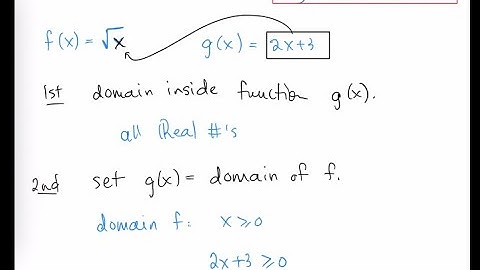 f(x) = √x g(x) = 2x+3
1st domain inside function g(x).
all Real #'s
2nd set g(x) = domain of f.
domain f: x ≥ 0
2x+3 ≥ 0